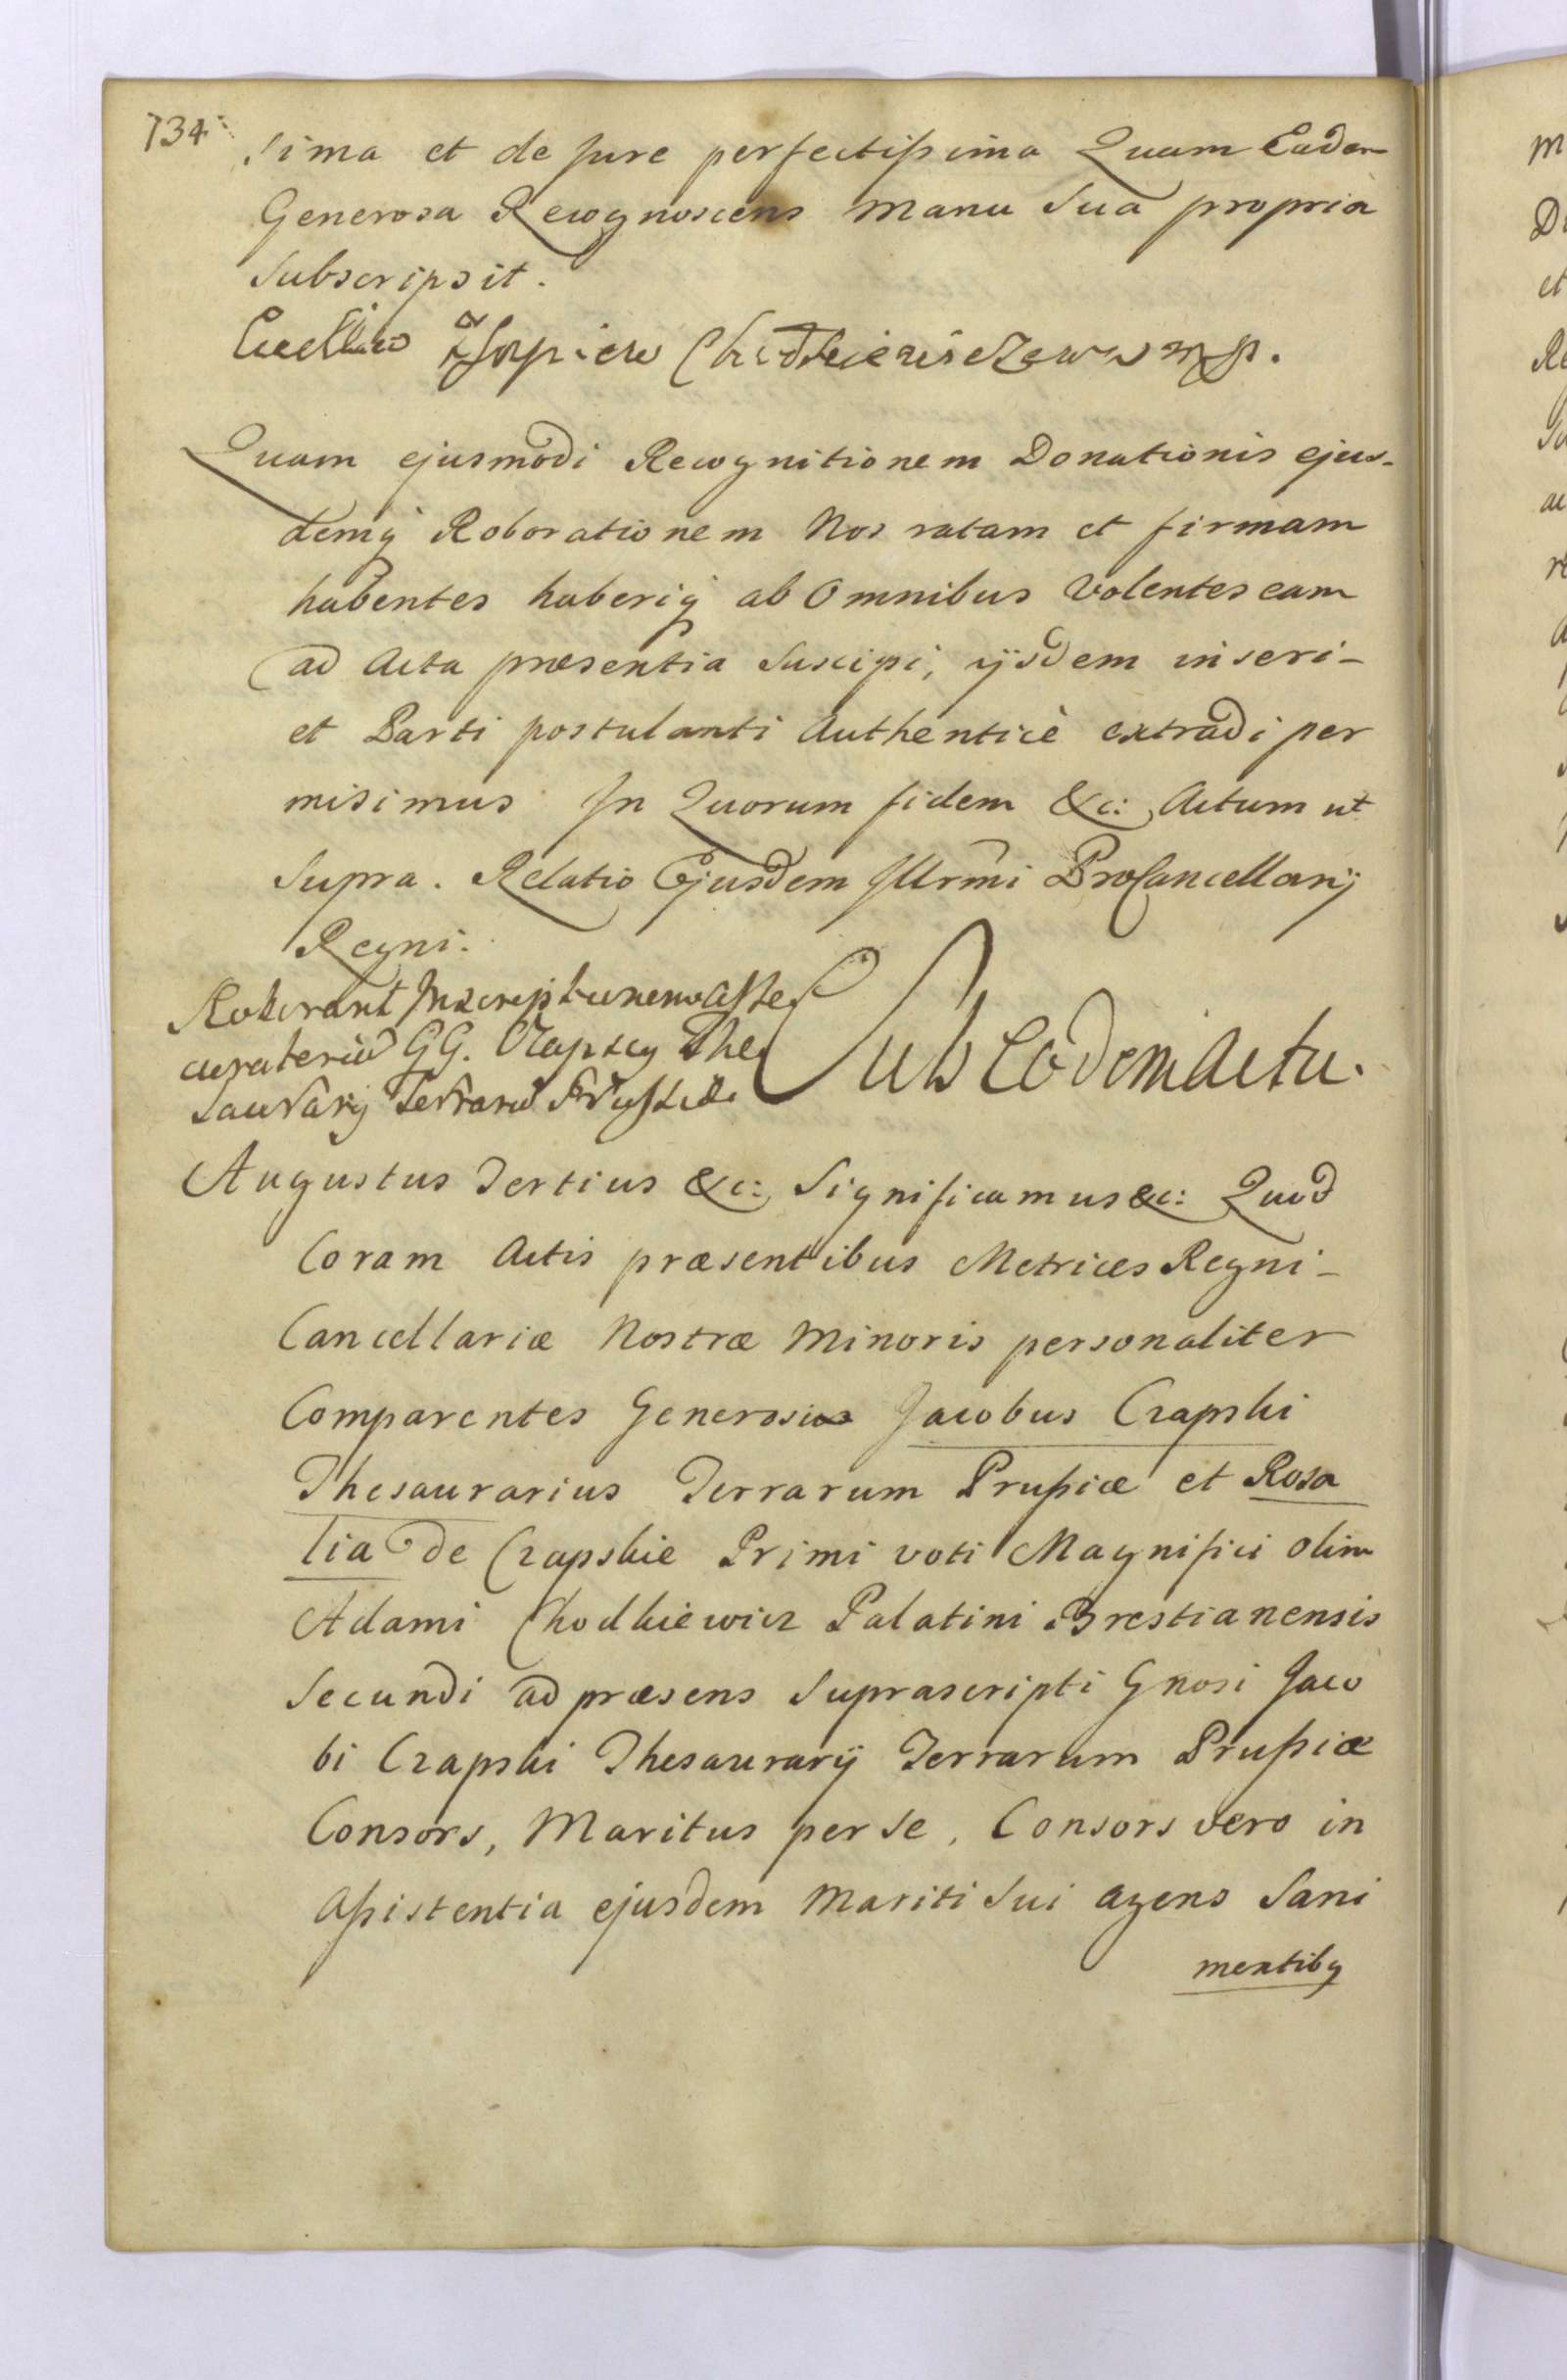 734
sima et de Jure perfectissima Quam Eadem
Generosa Recognoscens manu Sua propria
Subscripsit.
Zsapiew Chodkiewiczowa mp.
Quam ejusmodi Recognitionem Donationis ejus-
demq Roborationem Nos ratam et firmam
habentes haberiq ab Omnibus volentes eam
ad Acta præsentia Suscipi, ijsdem inseri-
et Parti postulanti Authenticè extradi per
misimus. In Quorum fidem &c: Actum ut
Supra. Relatio Ejusdem Illrmi ProCancellarij
Regni.
Roborant Inscriptionem
GG. Czapscy The
saurarij Terrarū Prussiæ
Sub Eodem Actu.
Augustus Tertius &c: Significamus &c: Quod
Coram Actis præsentibus Metrices Regni-
Cancellariæ Nostræ Minoris personaliter
Comparentes Generosus Jacobus Czapski
Thesaurarius Terrarum Prussiæ et Rosa
lia de Czapskie Primi voti Magnifici olim
Adami Chodkiewicz Palatini Brestianensis
Secundi ad præsens Suprascripti Gnosi Jaco
bi Czapski Thesaurarij Terrarum Prussiæ
Consors, Maritus per Se, Consors vero in
Assistentia ejusdem Mariti Sui agens Sani
mentibq